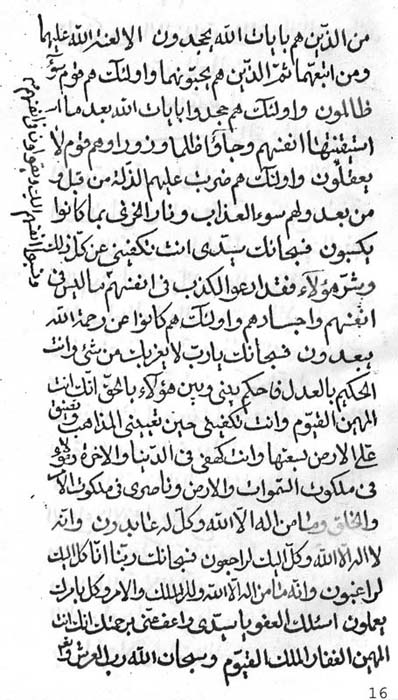 من الذین هم بایات الله یجحدون الا لعنة الله علیهما
ومن اتبعهما ثم الذین هم یحبونهما واولئک هم قوم سوء
ظالمون واولئک هم جحدوا بایات الله بعد ما
استیقنتها انفسهم وجاؤا ظلما وزورا وهم قوم لا
یعقلون واولئک هم ضربت علیهم الذلة من قبل و
من بعد ولهم سوء العذاب ونار الخزی بما کانوا
یکسبون فسبحانک سیدی انت تکفینی عن کل ذلک
وشر هؤلاء فقد ادعو الکذب فی انفسهم ما لیس فی
انفسهم واجسادهم واولئک هم کانوا عن رحمة الله
یبعدون فسبحانک یارب لا یعزبک من شیء وانت
الحکیم بالعدل فاحکم بینی وبین هؤلاء بالحق انک انت
المهیمن القیوم وانت تکفینی حین تعیینی المذاهب وتضیق
علی الارض بسعتها وانت کهفی فی الدنیا والاخرة
فی ملکوت السموات والارض وناصری فی ملکوت الامر
والخلق وما من اله الا الله وکل له عابدون وانه
لا اله الا الله وکل الیک لراجعون فسبحانک ربنا انا کل الیک
لراغبون وانه ما من اله الا الله وله الملک والامر وکل بامرک
یعملون اسئلک العفو یا سیدی واعف عنی برحمتک انک انت
المهیمن الغفار والملک القیوم وسبحان الله رب العرش
ونسبوا انفسهم الیک ویقولون
16